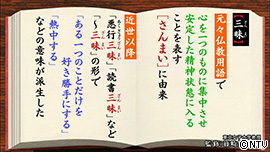 【三昧】
元々仏教用語で
心を一つのものに集中させ
安定した精神状態に入る
ことを表す
「さんまい」に由来
近世以降
「悪行三昧」「読書三昧」など
「～三昧」の形で
「ある一つのことだけを
好き勝手にする」
「熱中する」
などの意味が派生した
©NTV